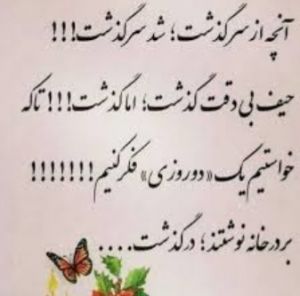 آنچه از سر گذشت؛ شد سرگذشت!!!
حیف بی دقت گذشت؛ اما گذشت!!! تا که
خواستیم یک «دو روزی» فکر کنیم!!!!!!!
بر در خانه نوشتند؛ درگذشت....